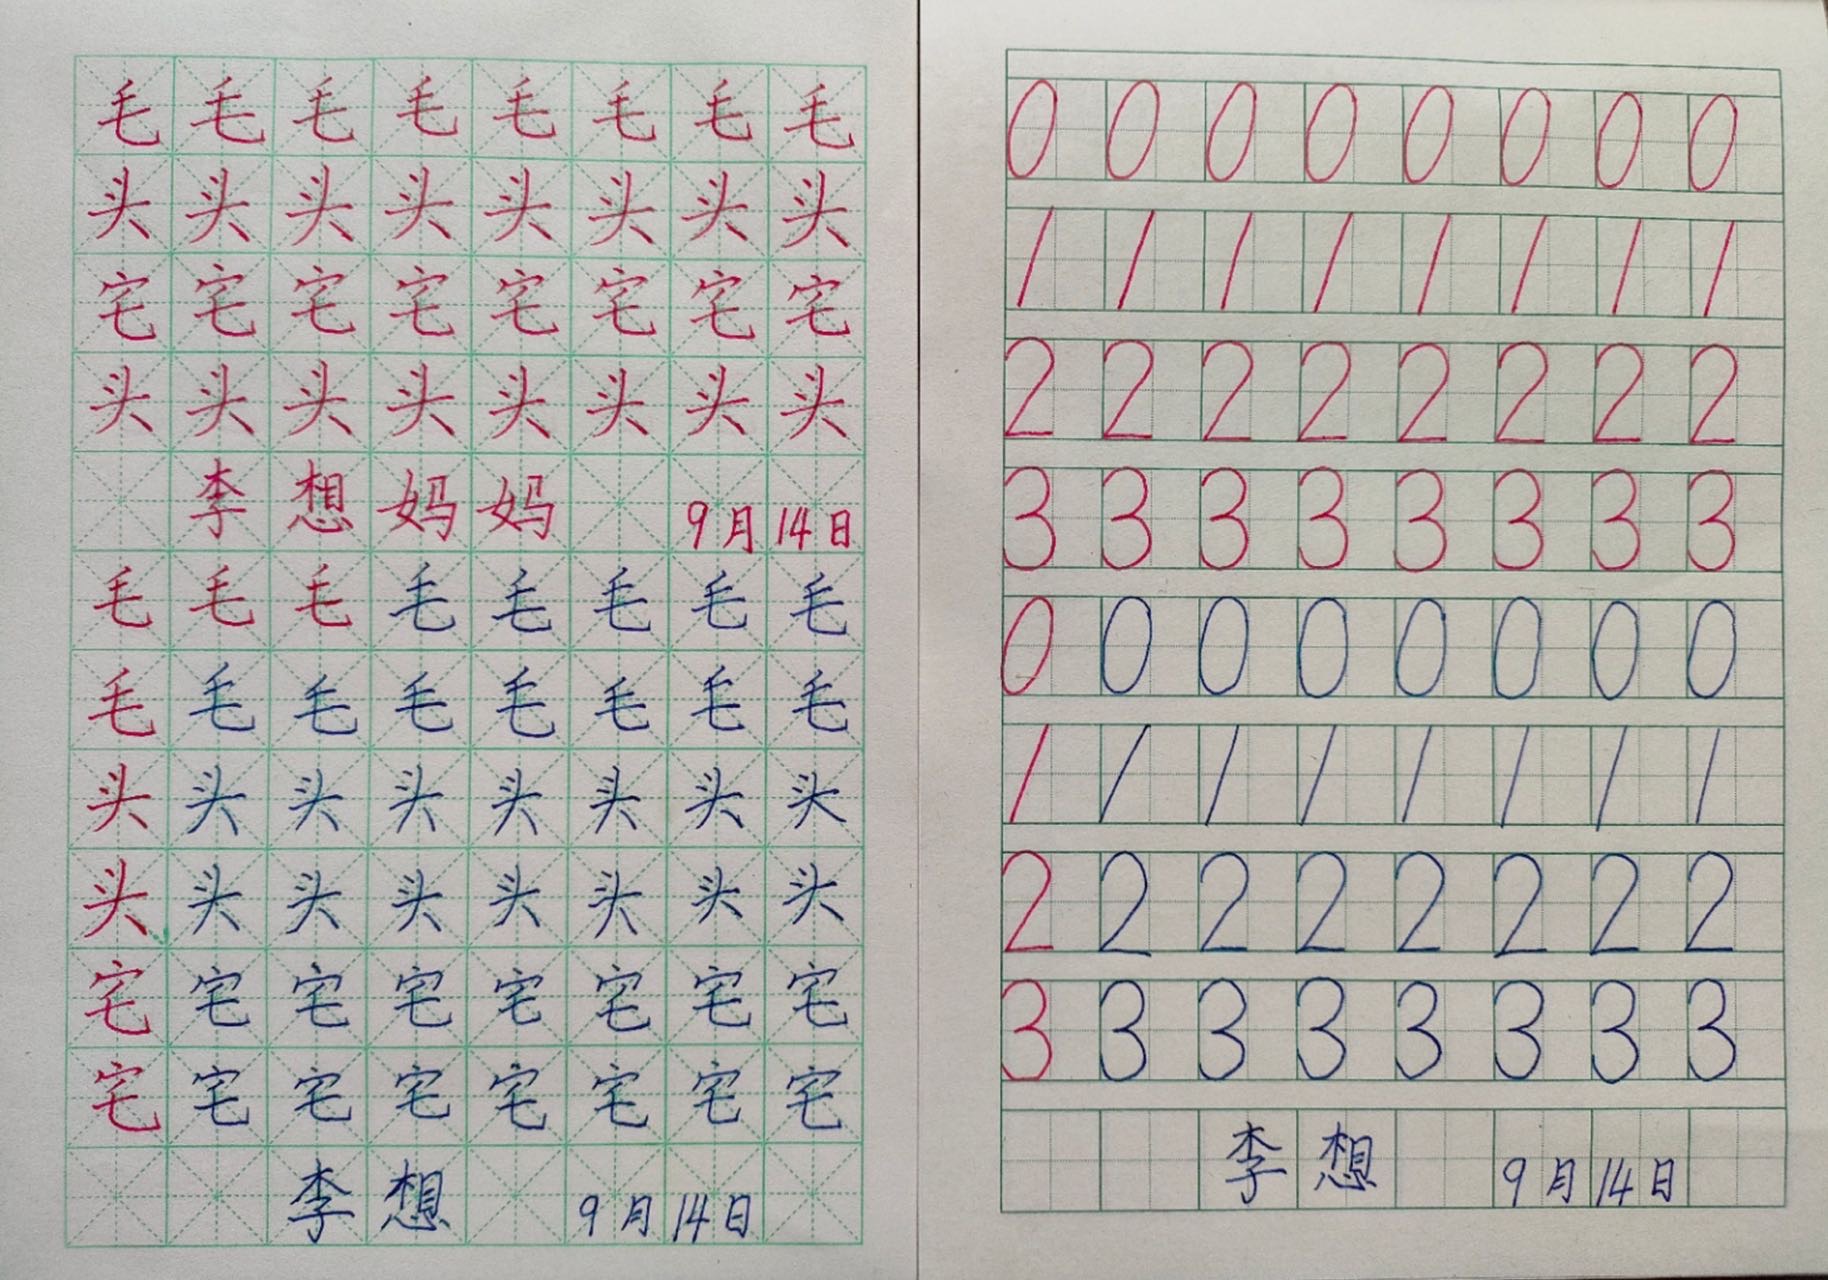 毛毛毛毛毛毛毛毛
头头头头头头头头
宅宅宅宅宅宅宅宅
头头头头头头头头
李想妈妈 9月14日
毛毛毛毛毛毛毛毛
毛毛毛毛毛毛毛毛
头头头头头头头头
头头头头头头头头
宅宅宅宅宅宅宅宅
宅宅宅宅宅宅宅宅
李想 9月14日
0 0 0 0 0 0 0 0
1 1 1 1 1 1 1 1
2 2 2 2 2 2 2 2
3 3 3 3 3 3 3 3
0 0 0 0 0 0 0 0
1 1 1 1 1 1 1 1
2 2 2 2 2 2 2 2
3 3 3 3 3 3 3 3
李想 9月14日